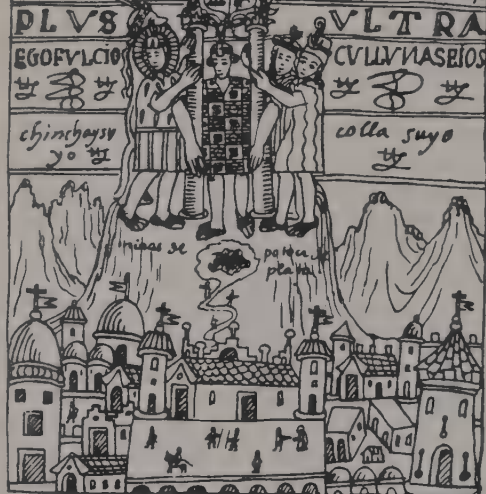 PLVS VLTRA
EGOFVLCIO CVLLVNASEIOS
chinchaysu
yo
colla suyo
minas de potocchi
plata